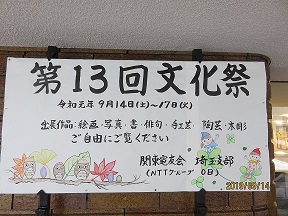 第13回文化祭
令和元年 9月14日(土)~17日(火)
出展作品:絵画・写真・書・俳句・手工芸・陶芸・木彫
ご自由にご覧ください
関東電友会 埼玉支部
(NTTグループ OB)
2019/09/14